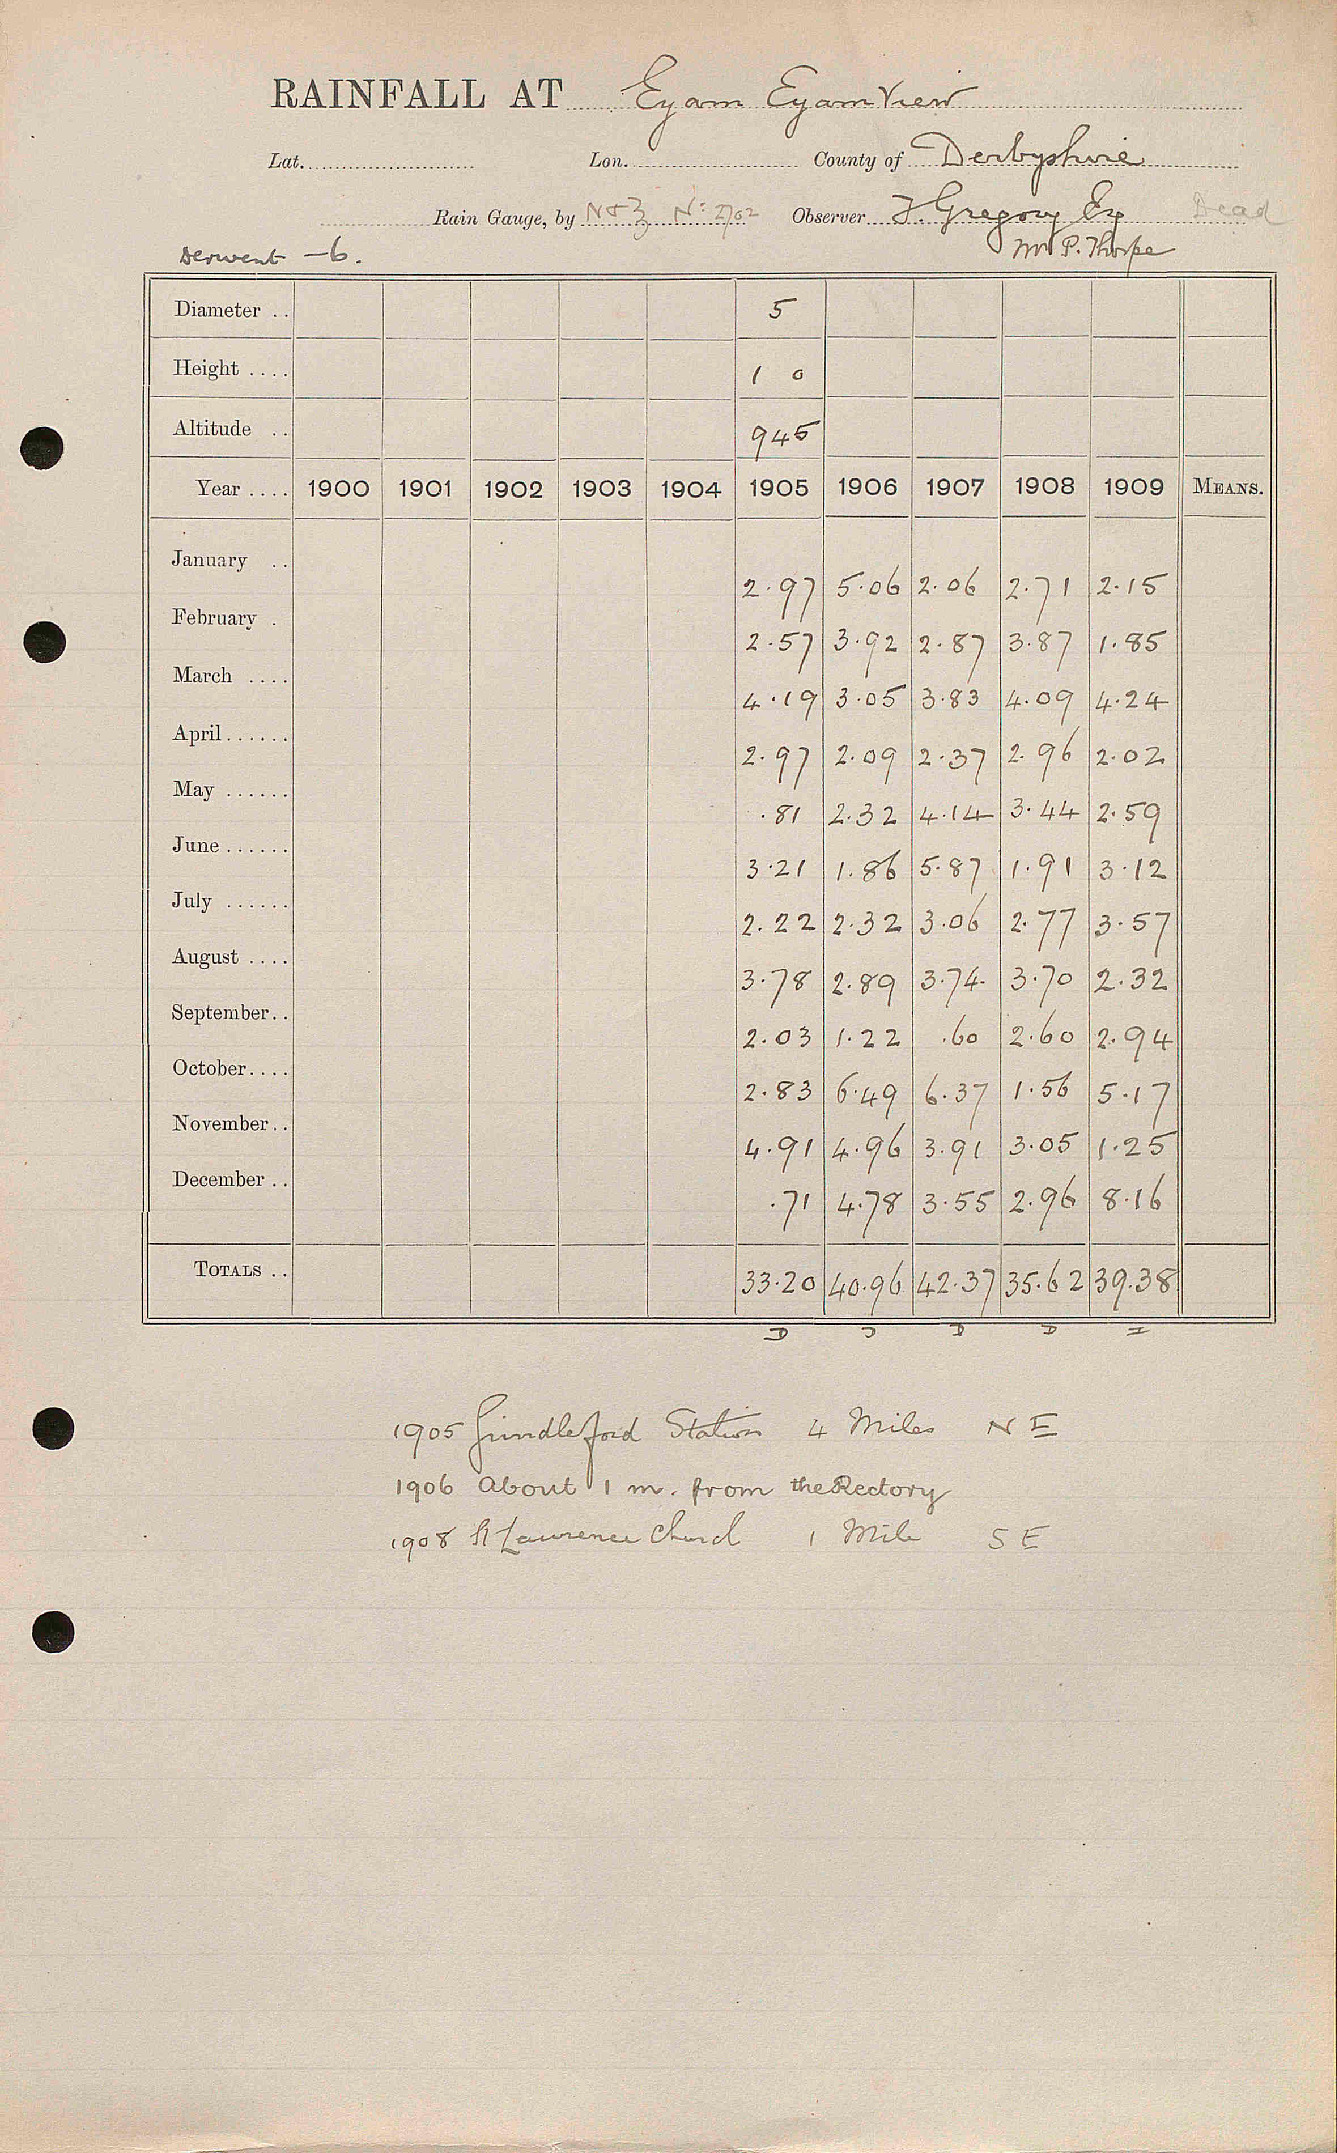 RAINFALL AT Eyam Eyam View
Lat. Lon. County of Derbyshire
Rain Gauge, by N & Z No 2702 Observer J. Gregory Esq Dead
Derwent - 6. Mr P. Thorpe
Diameter .. 5
Height .... 1 0
Altitude .. 945
Year .... 1900 1901 1902 1903 1904 1905 1906 1907 1908 1909 MEANS.
January .. 2.97 5.06 2.06 2.71 2.15
February . 2.57 3.92 2.87 3.87 1.85
March .... 4.19 3.05 3.83 4.09 4.24
April ...... 2.97 2.09 2.37 2.96 2.02
May ...... .81 2.32 4.14 3.44 2.59
June ...... 3.21 1.86 5.87 1.91 3.12
July ...... 2.22 2.32 3.06 2.77 3.57
August .... 3.78 2.89 3.74 3.70 2.32
September.. 2.03 1.22 .60 2.60 2.94
October.... 2.83 6.49 6.37 1.56 5.17
November.. 4.91 4.96 3.91 3.05 1.25
December .. .71 4.78 3.55 2.96 8.16
TOTALS .. 33.20 40.96 42.37 35.62 39.38
1905 Grindleford Station 4 Miles N E
1906 About 1 m. from the Rectory
1908 St Lawrence Church 1 Mile S E